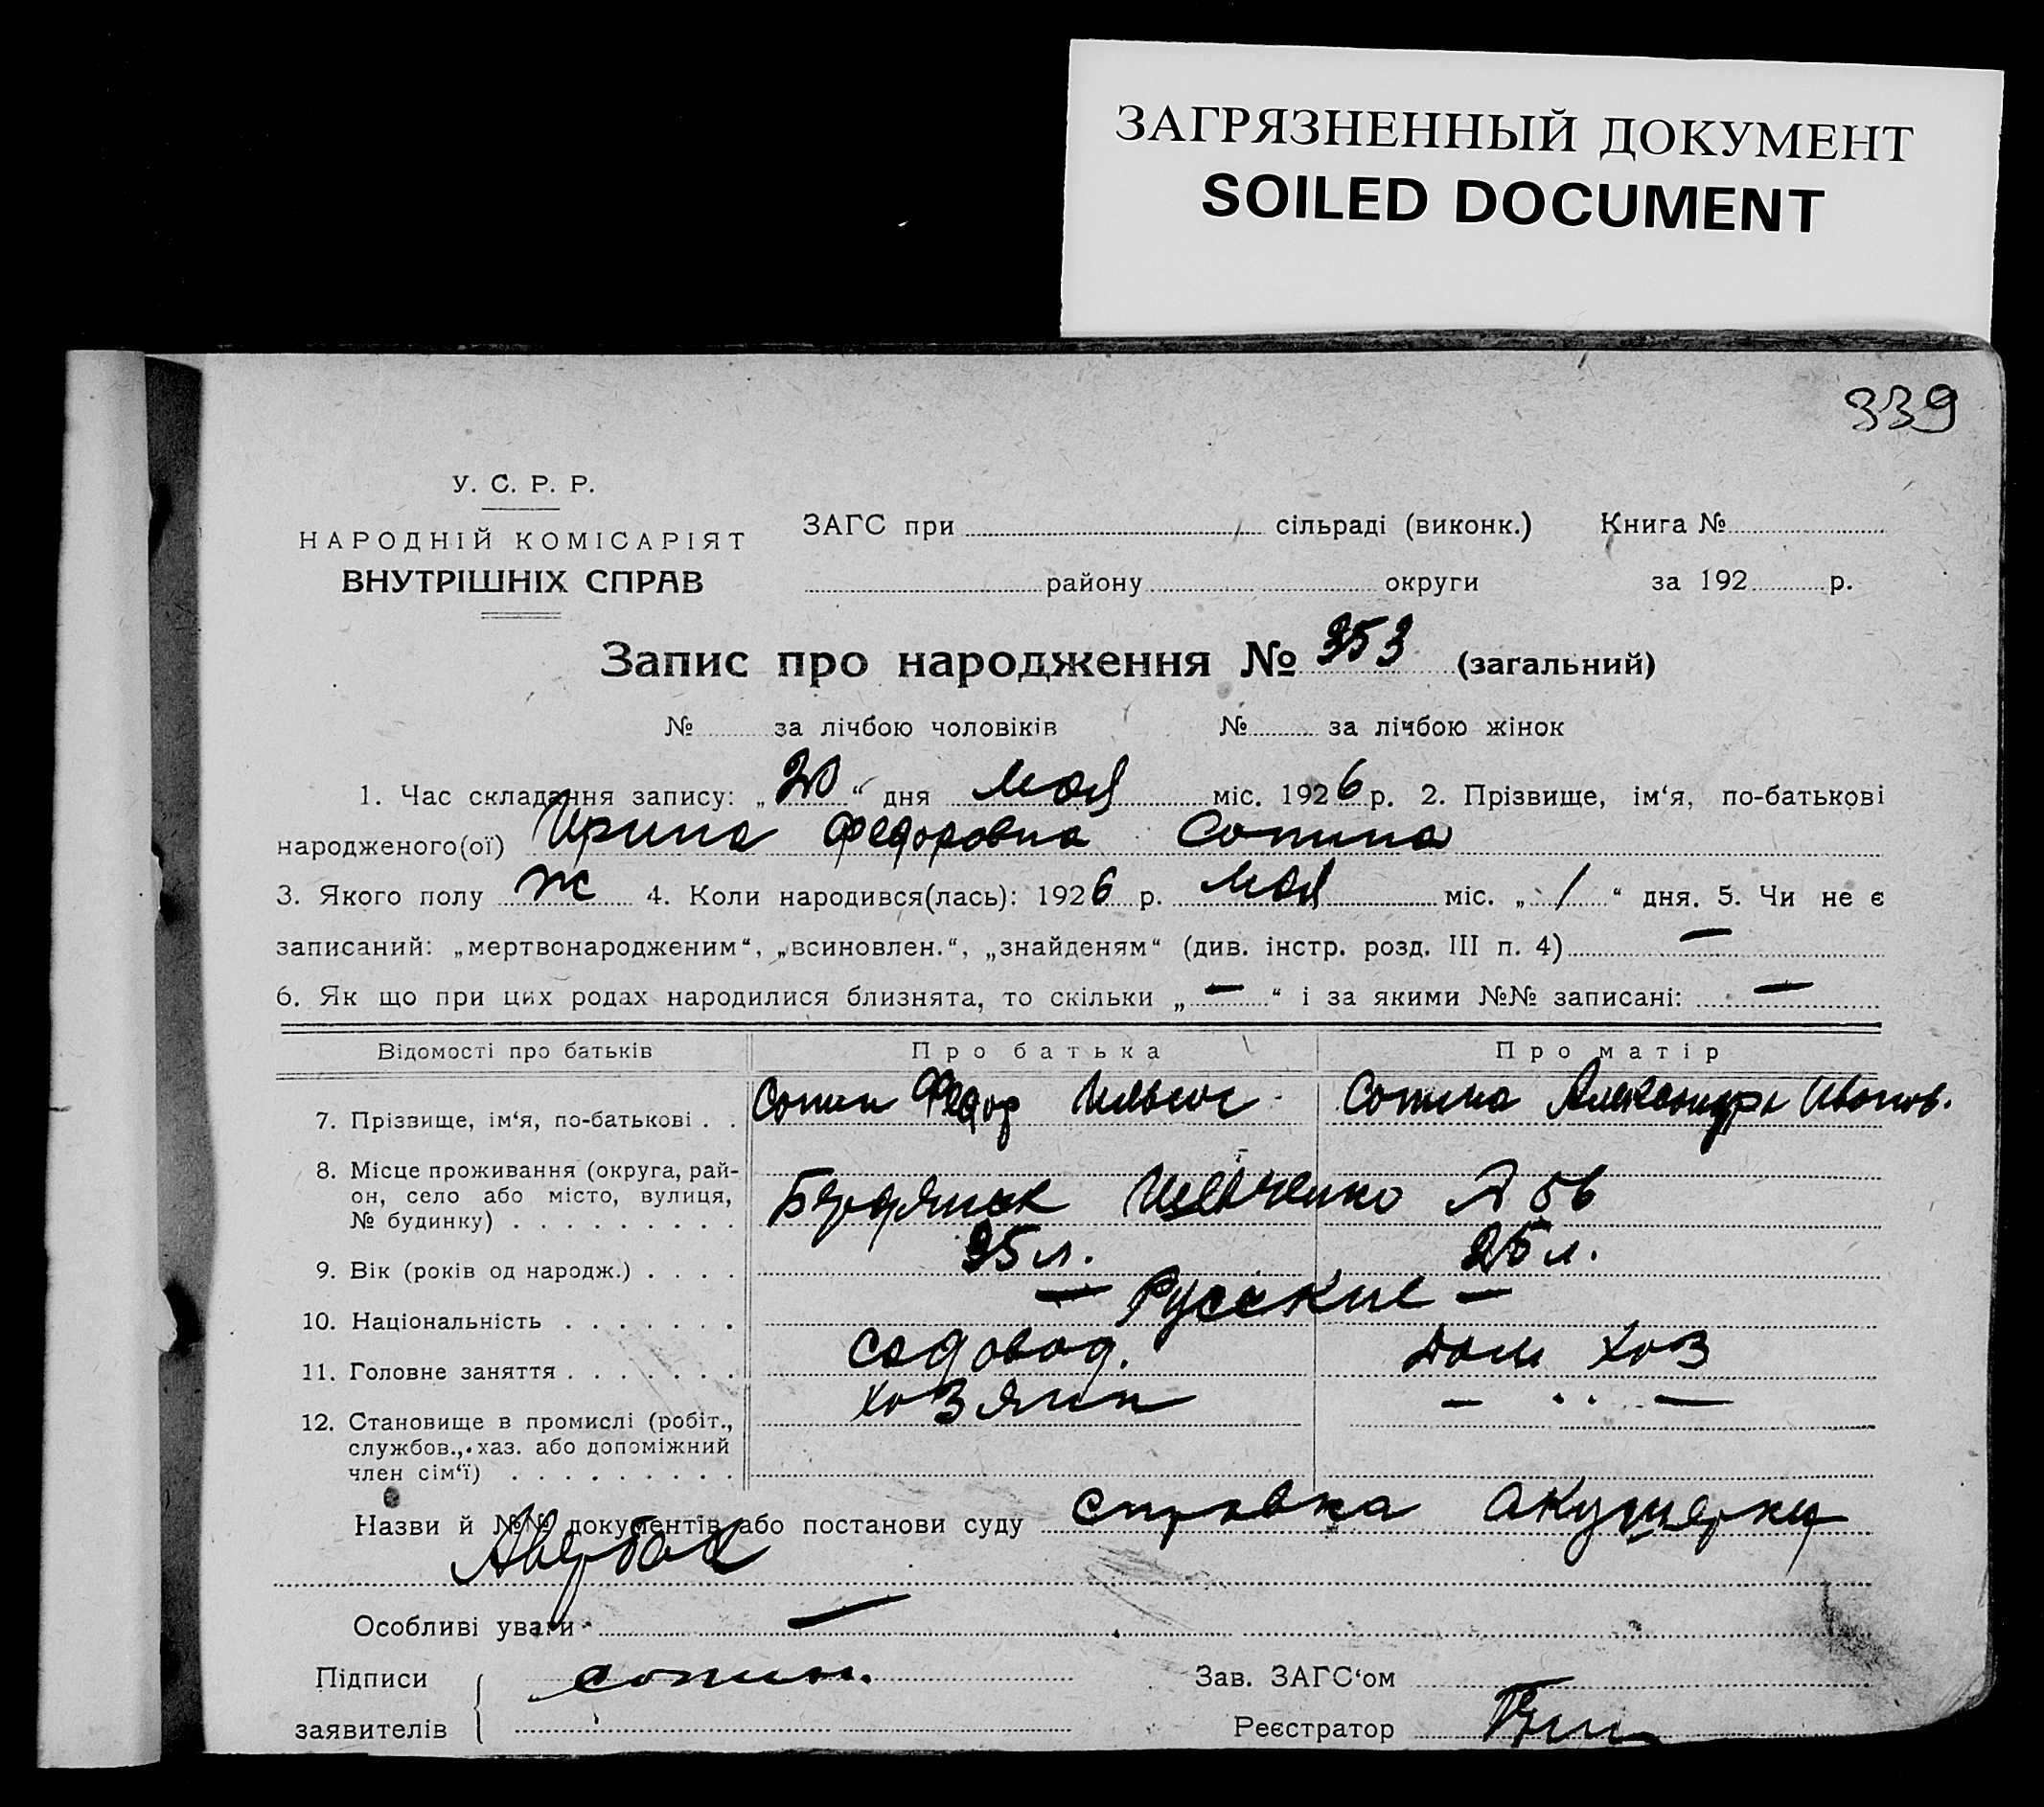 ЗАГРЯЗНЕННЫЙ ДОКУМЕНТ
SOILED DOCUMENT
339
У. С. Р. Р.
НАРОДНІЙ КОМІСАРІЯТ
ВНУТРІШНІХ СПРАВ
ЗАГС при сільраді (виконк.) Книга №
району округи за 192 р.
Запис про народження № 353 (загальний)
№ за лічбою чоловіків № за лічбою жінок
1. Час складання запису: „20“ дня мая міс. 1926 р. 2. Прізвище, ім‘я, по-батькові
народженого(ої) Ирина Федоровна Сотина
3. Якого полу ж 4. Коли народився(лась): 1926 р. мая міс. „1“ дня. 5. Чи не є
записаний: „мертвонародженим“, „всиновлен.“, „знайденям“ (див. інстр. розд. III п. 4) —
6. Як що при цих родах народилися близнята, то скільки „—“ і за якими №№ записані: —
Відомості про батьків Про батька Про матір
7. Прізвище, ім‘я, по-батькові . . Сотин Федор Ильич Сотина Александра Иванов.
8. Місце проживання (округа, рай-
он, село або місто, вулиця,
№ будинку) . . . . . . . . . Бердянск Шевченко 56
9. Вік (років од народж.) . . . . 35 л. 25 л.
10. Національність . . . . . . . — Русские —
11. Головне заняття . . . . . . . садовод. Дом хоз
12. Становище в промислі (робіт., хозяин — „ —
службов., хаз. або допоміжний
член сім‘ї) . . . . . . . . .
Назви й №№ документів або постанови суду справка акушерки
Авербах
Особливі уваги —
Підписи Сотин. Зав. ЗАГС‘ом
заявителів Реєстратор